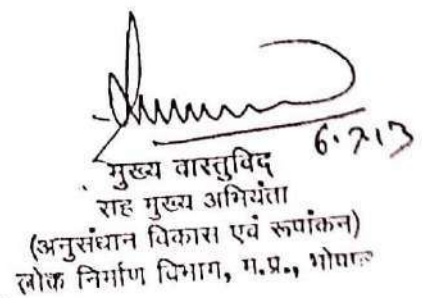 6.7.13
मुख्य वास्तुविद
सह मुख्य अभियंता
(अनुसंधान विकास एवं रूपांकन)
लोक निर्माण विभाग, म.प्र., भोपाल